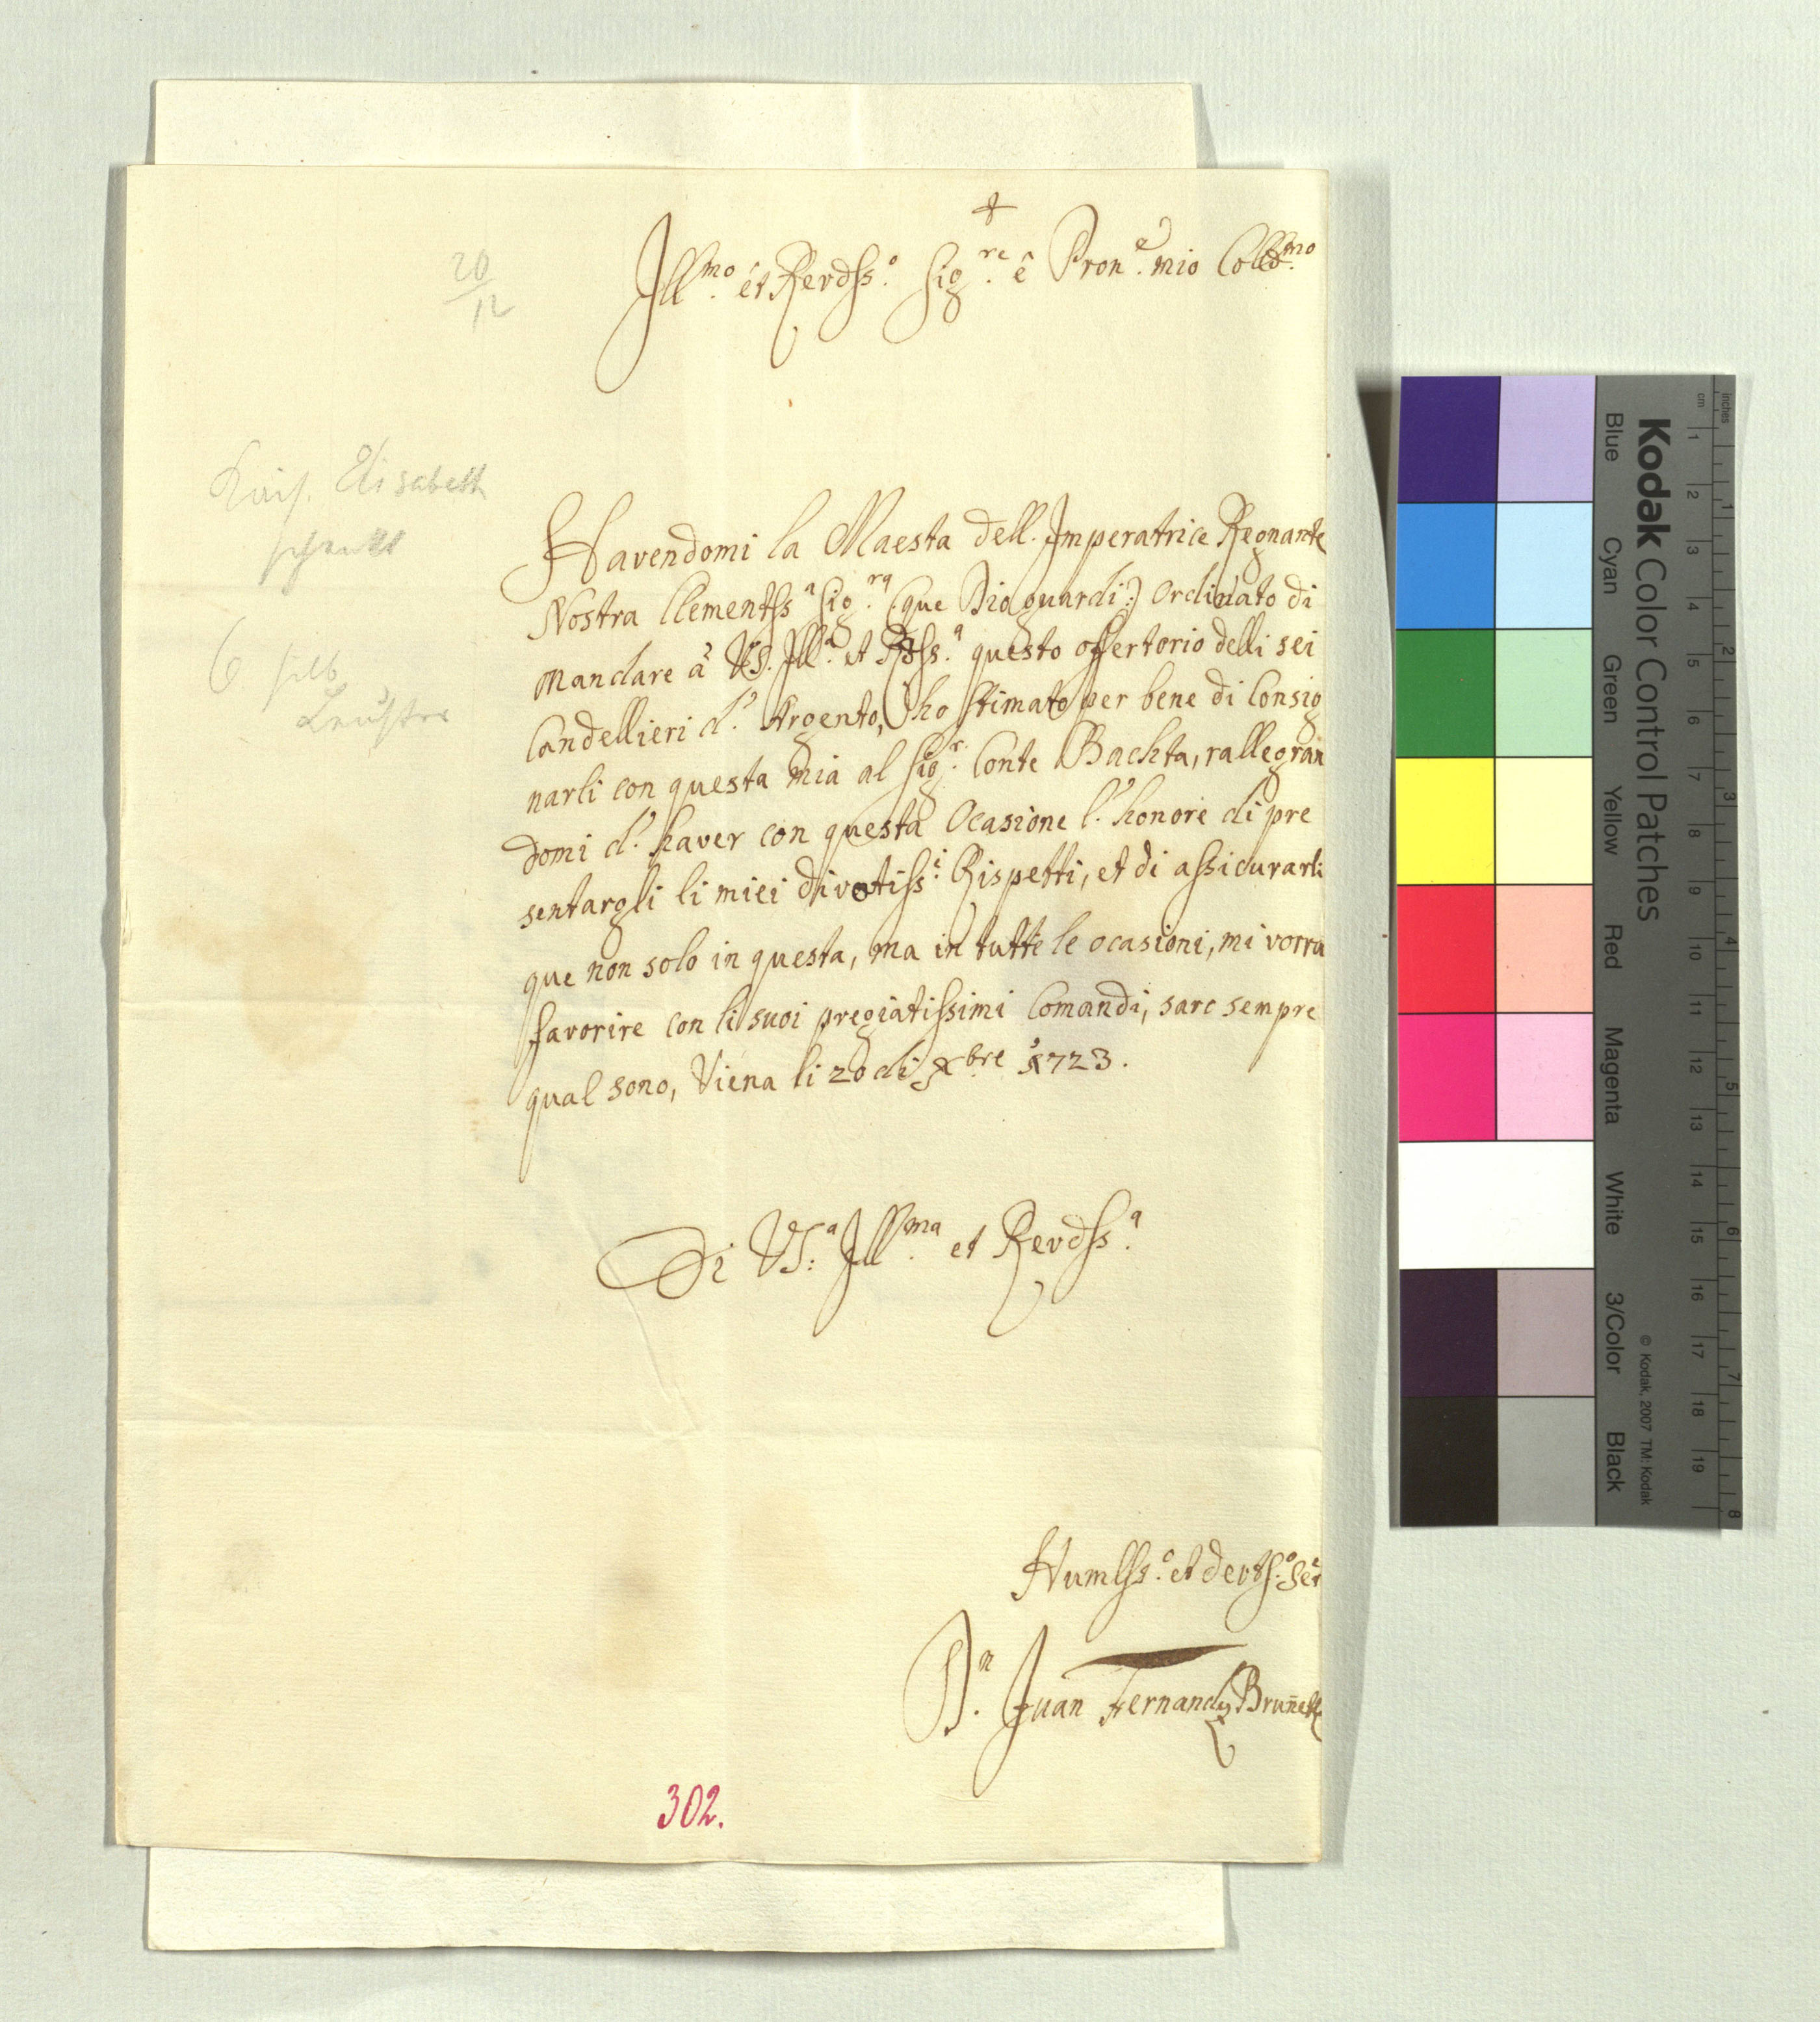 +
Ill.mo et Revdss.o Sig.re e Pron.e mio Coll.mo
20
12
Kais. Elisabeth
schenkt
6 silb
Leuchter
Havendomi la Maesta dell. Imperatrice Regnante
Nostra Clementss.a Sig.ra (que Dio guardi:) ordinato di
mandare à VS. Ill.a et Rdss.a questo offertorio delli sei
Candellieri d'. Argento, ho stimato per bene di Consig
narli con questa mia al Sig.r Conte Bachta, rallegran
domi d'. haver con questa Ocasione l'. honore di pre
sentargli li miei divotiss.i Rispetti, et di assicurarli
que non solo in questa, ma in tutte le ocasioni, mi vorra
favorire con li suoi pregiatissimi Comandi, saro sempre
qual sono, Viena li 20 di Xbre 1723.
Di VS:a Ill.ma et Revdss.a
Humlss.o et devts.o Ser
D.n Juan Fernandz Bruñetti
302.
Kodak Color Control Patches
Blue Cyan Green Yellow Red Magenta White 3/Color Black
© Kodak, 2007 TM: Kodak
inches 1 2 3 4 5 6 7 8
cm 1 2 3 4 5 6 7 8 9 10 11 12 13 14 15 16 17 18 19